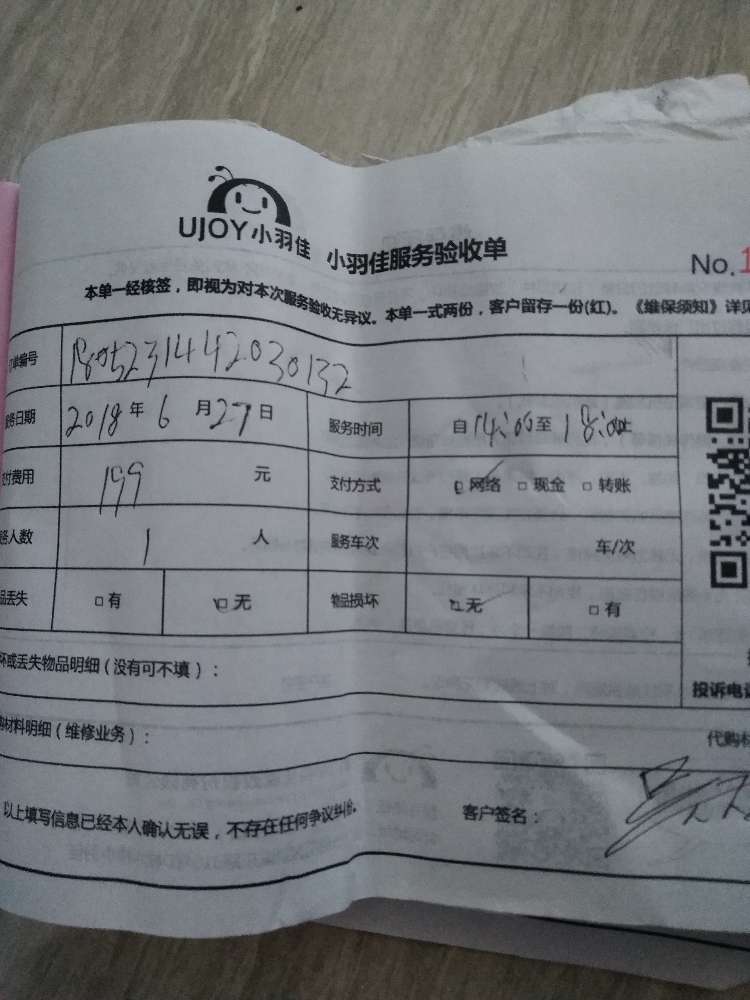 UJOY小羽佳 小羽佳服务验收单
No.1
本单一经核签，即视为对本次服务验收无异议。本单一式两份，客户留存一份(红)。《维保须知》详见
订单编号 1805231442030132
服务日期 2018年6月27日 服务时间 自14:00至18:00止
支付费用 199元 支付方式 网络 现金 转账
服务人数 1人 服务车次 车/次
品丢失 有 无 物品损坏 无 有
坏或丢失物品明细（没有可不填）：
投诉电话
购材料明细（维修业务）：
代购材
以上填写信息已经本人确认无误，不存在任何争议纠纷。 客户签名：